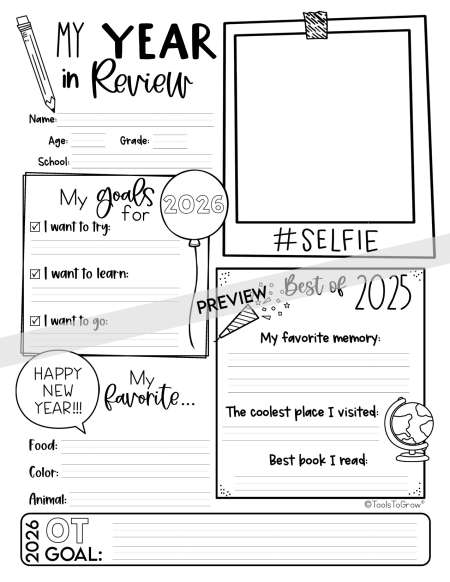 MY YEAR
in Review
Name:
Age: Grade:
School:
#SELFIE
My goals
for 2026
☑ I want to try:
☑ I want to learn:
☑ I want to go:
PREVIEW
Best of 2025
My favorite memory:
The coolest place I visited:
Best book I read:
HAPPY
NEW
YEAR!!!
My
favorite...
Food:
Color:
Animal:
©ToolsToGrow®
2026
OT
GOAL: